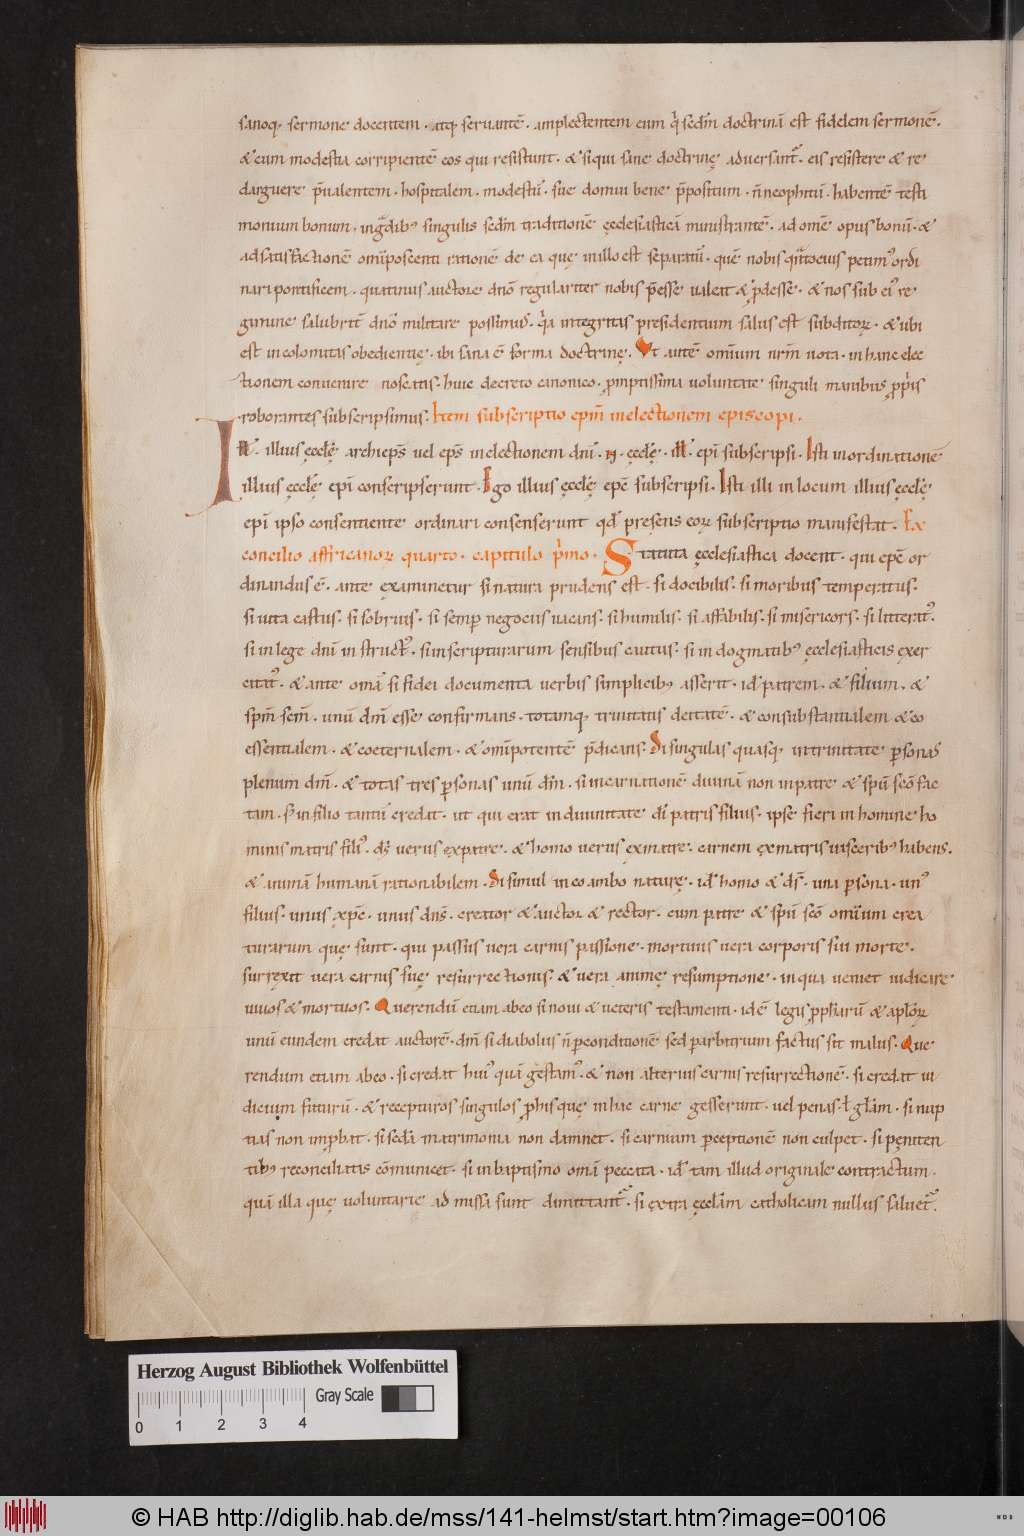 sanoq; sermone docentem · atq; seruantē · amplectentem eum q̇ sedm̄ doctrinā est fidelem sermonē ·
& cum modestia corripientē eos qui resistunt · & siqui sanę doctrinę aduersant᷑ · eis resistere & re
darguere p̄ualentem · hospitalem · modestū · suę domui bene p̄positum · ñ neophitū · habentē testi
monium bonum · in gradib; singulis sedm̄ traditionē ęcclesiasticā ministrantē · ad omē opus bonū · &
ad satisfactionē omīposcenti rationē de ea quę in illo est separatū · quē nobis petim᷒ ordi
nari pontificem · quatinus auctore dn̄o regulariter nobis p̄esse ualeat & p̄desse · & nos sub ei᷒ re
gimine salubrit̄ dn̄o militare possimus · q̇a integritas presidentium salus est subditoꝝ · & ubi
est incolomitas obedientię · ibi sana ē forma doctrinę · Vt autē omīum nrm̄ uota · in hanc elec
tionem conuenire noscatis · huic decreto canonico · promptissima uoluntate singuli manibus p̄p̄iis
roborantes subscripsimus · Item subscriptio epm̄ in electionem episcopi ·
Ill · illius ęcclę̄ archieps̄ uel eps̄ in electionem dnī · N · ęcclę̄ · ill · epī subscripsi · Isti in ordinatione
illius ęcclę̄ epī conscripserunt · Ego illius ęcclę̄ epc̄ subscripsi · Isti illi in locum illius ęcclę̄
epī ipso consentiente ordinari consenserunt qd̄ presens eoꝝ subscriptio manifestat · Ex
concilio affricanoꝝ quarto · capitulo p̄mo · Statuta ęcclesiastica docent · qui epc̄ or
dinandus ē · ante examinetur si natura prudens est · si docibilis · si moribus temperatus ·
si uita castus · si sobrius · si semp̄ negociis uacans · si humilis · si affabilis · si misericors · si litterat᷒ ·
si in lege dnī instruct᷒ · si in scripturarum sensibus cautus · si in dogmatib; ęcclesiasticis exer
citat᷒ · & ante omā si fidei documenta uerbis simplicib; asserit · id ē patrem · & filium · &
spm̄ scm̄ · unū dm̄ esse confirmans · totamq; trinitatis deitatē · & consubstantialem & co
essentialem · & coeternalem · & omīpotentē p̄dicans · Si singulas quasq; in trinitate p̄sonas
plenum dm̄ · & totas tres p̄sonas unū dm̄ · si incarnationē diuinā non in patre & spū scō fac
tam · s; in filio tantū credat · ut qui erat in diuinitate dī patris filius · ipse fieri in homine ho
minis matris fili᷒ · ds̄ uerus ex patre · & homo uerus ex matre · carnem ex matris uisceribus habens ·
& animā humanā rationabilem · Si simul in eo ambo naturę · id ē homo & ds̄ · una p̄sona · un᷒
filius · unus xpc̄ · unus dns̄ · creator & auctor & rector · cum patre & spū scō omīum crea
turarum quę sunt · qui passus uera carnis passione · mortuus uera corporis sui morte ·
surrexit uera carnis suę resurrectionis & uera animę resumptione · in qua ueniet iudicare
uiuos & mortuos · Querendū etiam abeo si noui & ueteris testamenti · idē legis p̄phetarū & aplōꝝ
unū eundem credat auctorē · dm̄ si diabolus ñ p̄ conditionē sed p̄ arbitrium factus sit malus · Que
rendum etiam abeo · si credat hui᷒ quā gestam᷒ · & non alterius carnis resurrectionē · si credat iu
dicium futurū · & recepturos singulos p̄ his quę in hac carne gesserunt · uel penas · ł glām · si nup
tias non imp̄bat · si secdā matrimonia non damnet · si carnium p̄ceptionē non culpet · si peniten
tib; reconciliatis cōmunicet · si in baptismo omā peccata · id ē tam illud originale contractum ·
quā illa quę uoluntarie admissa sunt dimittant᷑ · si extra ęcclām catholicam nullus saluet᷑ ·
Herzog August Bibliothek Wolfenbüttel
Gray Scale
0 1 2 3 4
© HAB http://diglib.hab.de/mss/141-helmst/start.htm?image=00106